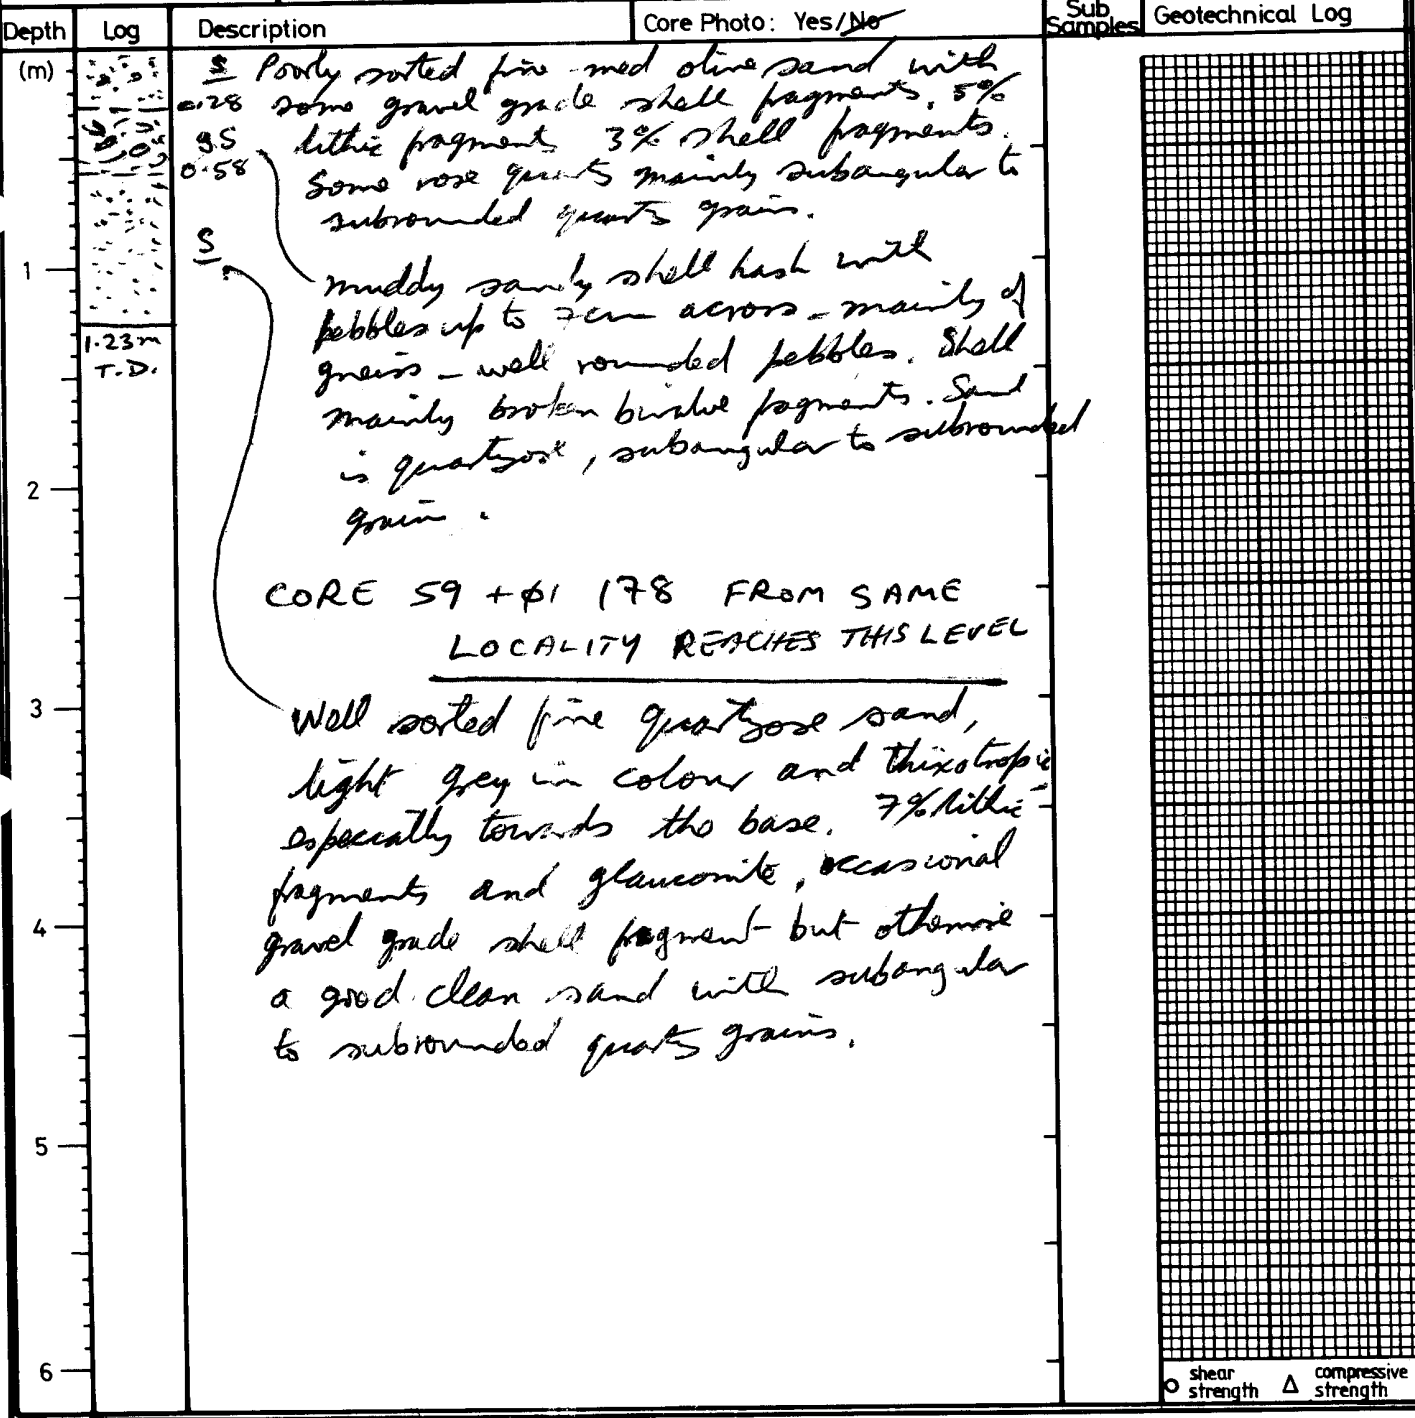 Depth Log Description Core Photo: Yes/No Sub Samples Geotechnical Log
(m)
S Poorly sorted fine - med olive sand with
0.28 some gravel grade shell fragments. 5%
gS lithic fragments 3% shell fragments.
0.58 Some rose quartz mainly subangular to
subrounded quartz grains.
S
1
muddy sandy shell hash with
pebbles up to 7cm across - mainly of
gneiss - well rounded pebbles. Shell
1.23m
T.D.
mainly broken bivalve fragments. Sand
is quartzose, subangular to subrounded
2
grains.
CORE 59 +01 178 FROM SAME
LOCALITY REACHES THIS LEVEL
3
Well sorted fine quartzose sand,
light grey in colour and thixotropic
especially towards the base. 7% lithic
fragments and glauconite, occasional
4
gravel grade shell fragment but otherwise
a good clean sand with subangular
to subrounded quartz grains.
5
6
shear strength
compressive strength